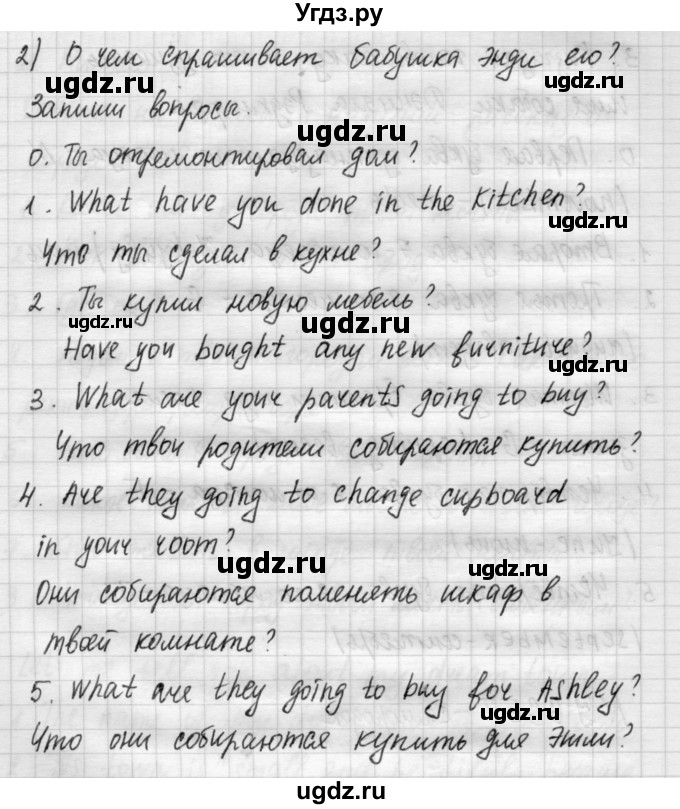 Угдз.ру
2) О чем спрашивает бабушка Энди его?
Запиши вопросы.
0. Ты отремонтировал дом?
1. What have you done in the kitchen?
Что ты сделал в кухне?
2. Ты купил новую мебель?
Have you bought any new furniture?
3. What are your parents going to buy?
Что твои родители собираются купить?
4. Are they going to change cupboard
in your room?
Они собираются поменять шкаф в
твоей комнате?
5. What are they going to buy for Ashley?
Что они собираются купить для Эшли?
ugdz.ru
ugdz.ru
ugdz.ru
ugdz.ru
ugdz.ru
ugdz.ru
ugdz.ru
ugdz.ru
ugdz.ru
ugdz.ru
ugdz.ru
ugdz.ru
ugdz.ru